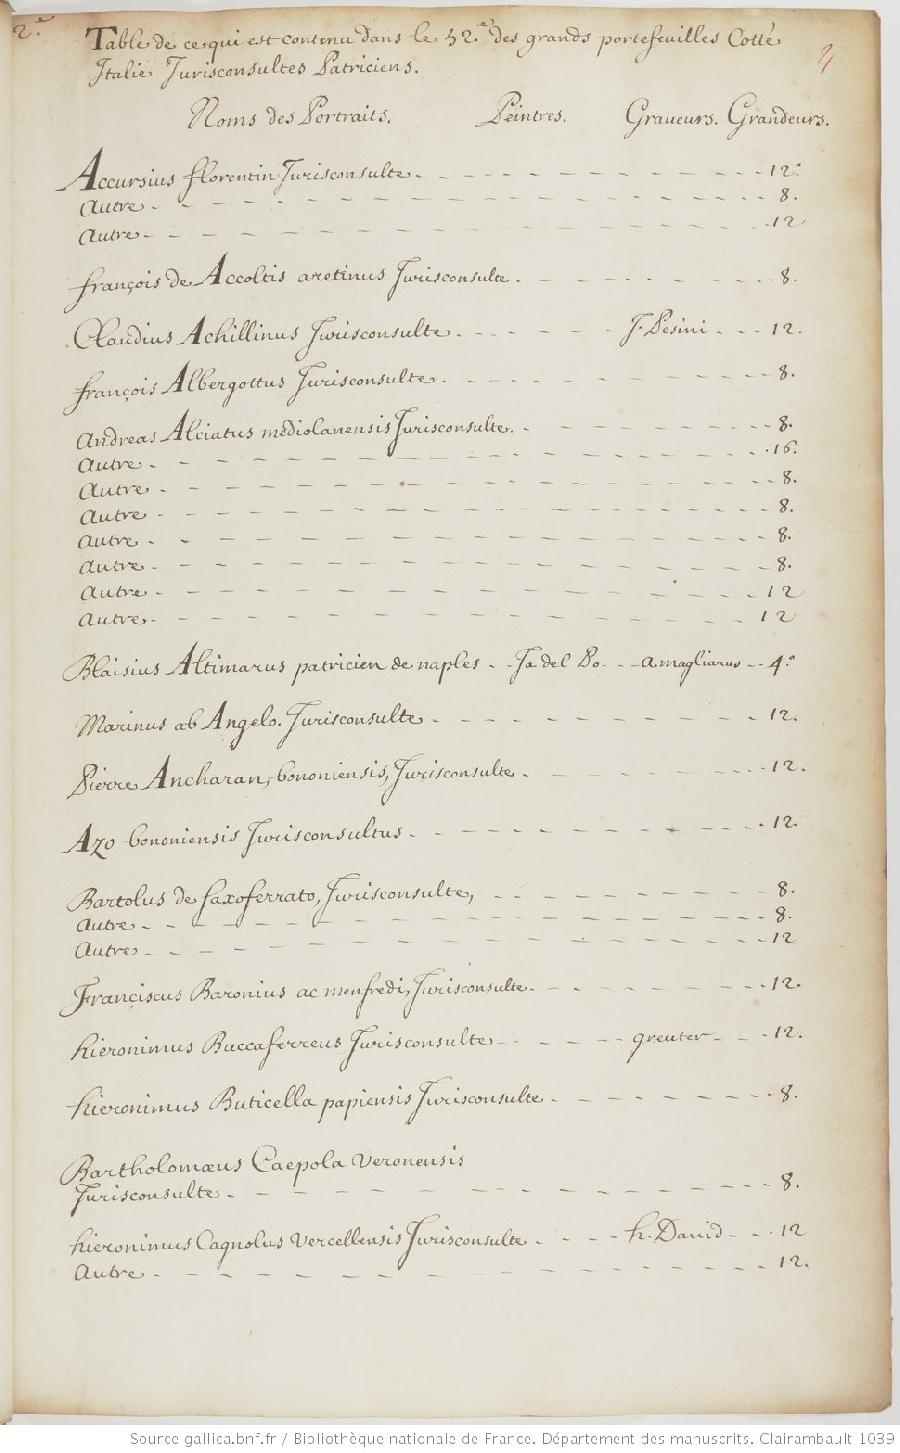 2.e
Table de ce qui est contenu dans le 52.e des grands portefeuilles Cotté
Italie Jurisconsultes Patriciens.
Noms des Portraits. Peintres. Graveurs. Grandeurs.
Accursius florentin Jurisconsulte - 12.o
Autre - 8.
Autre - 12
françois de Accoltis aretinus Jurisconsulte - 8.
Claudius Achillinus Jurisconsulte - J. Pesini - 12.
françois Albergottus Jurisconsulte - 8.
Andreas Alciatus mediolanensis Jurisconsulte. - 8.
Autre - 16.
Autre - 8.
Autre - 8.
Autre - 8.
Autre - 8.
Autre - 12
Autre - 12
Blaisius Altimarus patricien de naples - Ja del Po - amagliarus - 4.o
Marinus ab Angelo. Jurisconsulte - 12.
Pierre Ancharan, bononiensis, Jurisconsulte - 12.
Azo bononiensis Jurisconsultus - 12.
Bartolus de saxoferrato, Jurisconsulte, - 8.
Autre - 8.
Autre - 12
Franciscus Baronius ac menfredi, Jurisconsulte - 12.
hieronimus Buccaferreus Jurisconsulte - greuter - 12.
hieronimus Buticella papiensis Jurisconsulte - 8.
Bartholomæus Caepola Veronensis
Jurisconsulte - 8.
hieronimus Cagnolus Vercellensis Jurisconsulte - h. David - 12
Autre - 12.
Source gallica.bnf.fr / Bibliothèque nationale de France. Département des manuscrits. Clairambault 1039